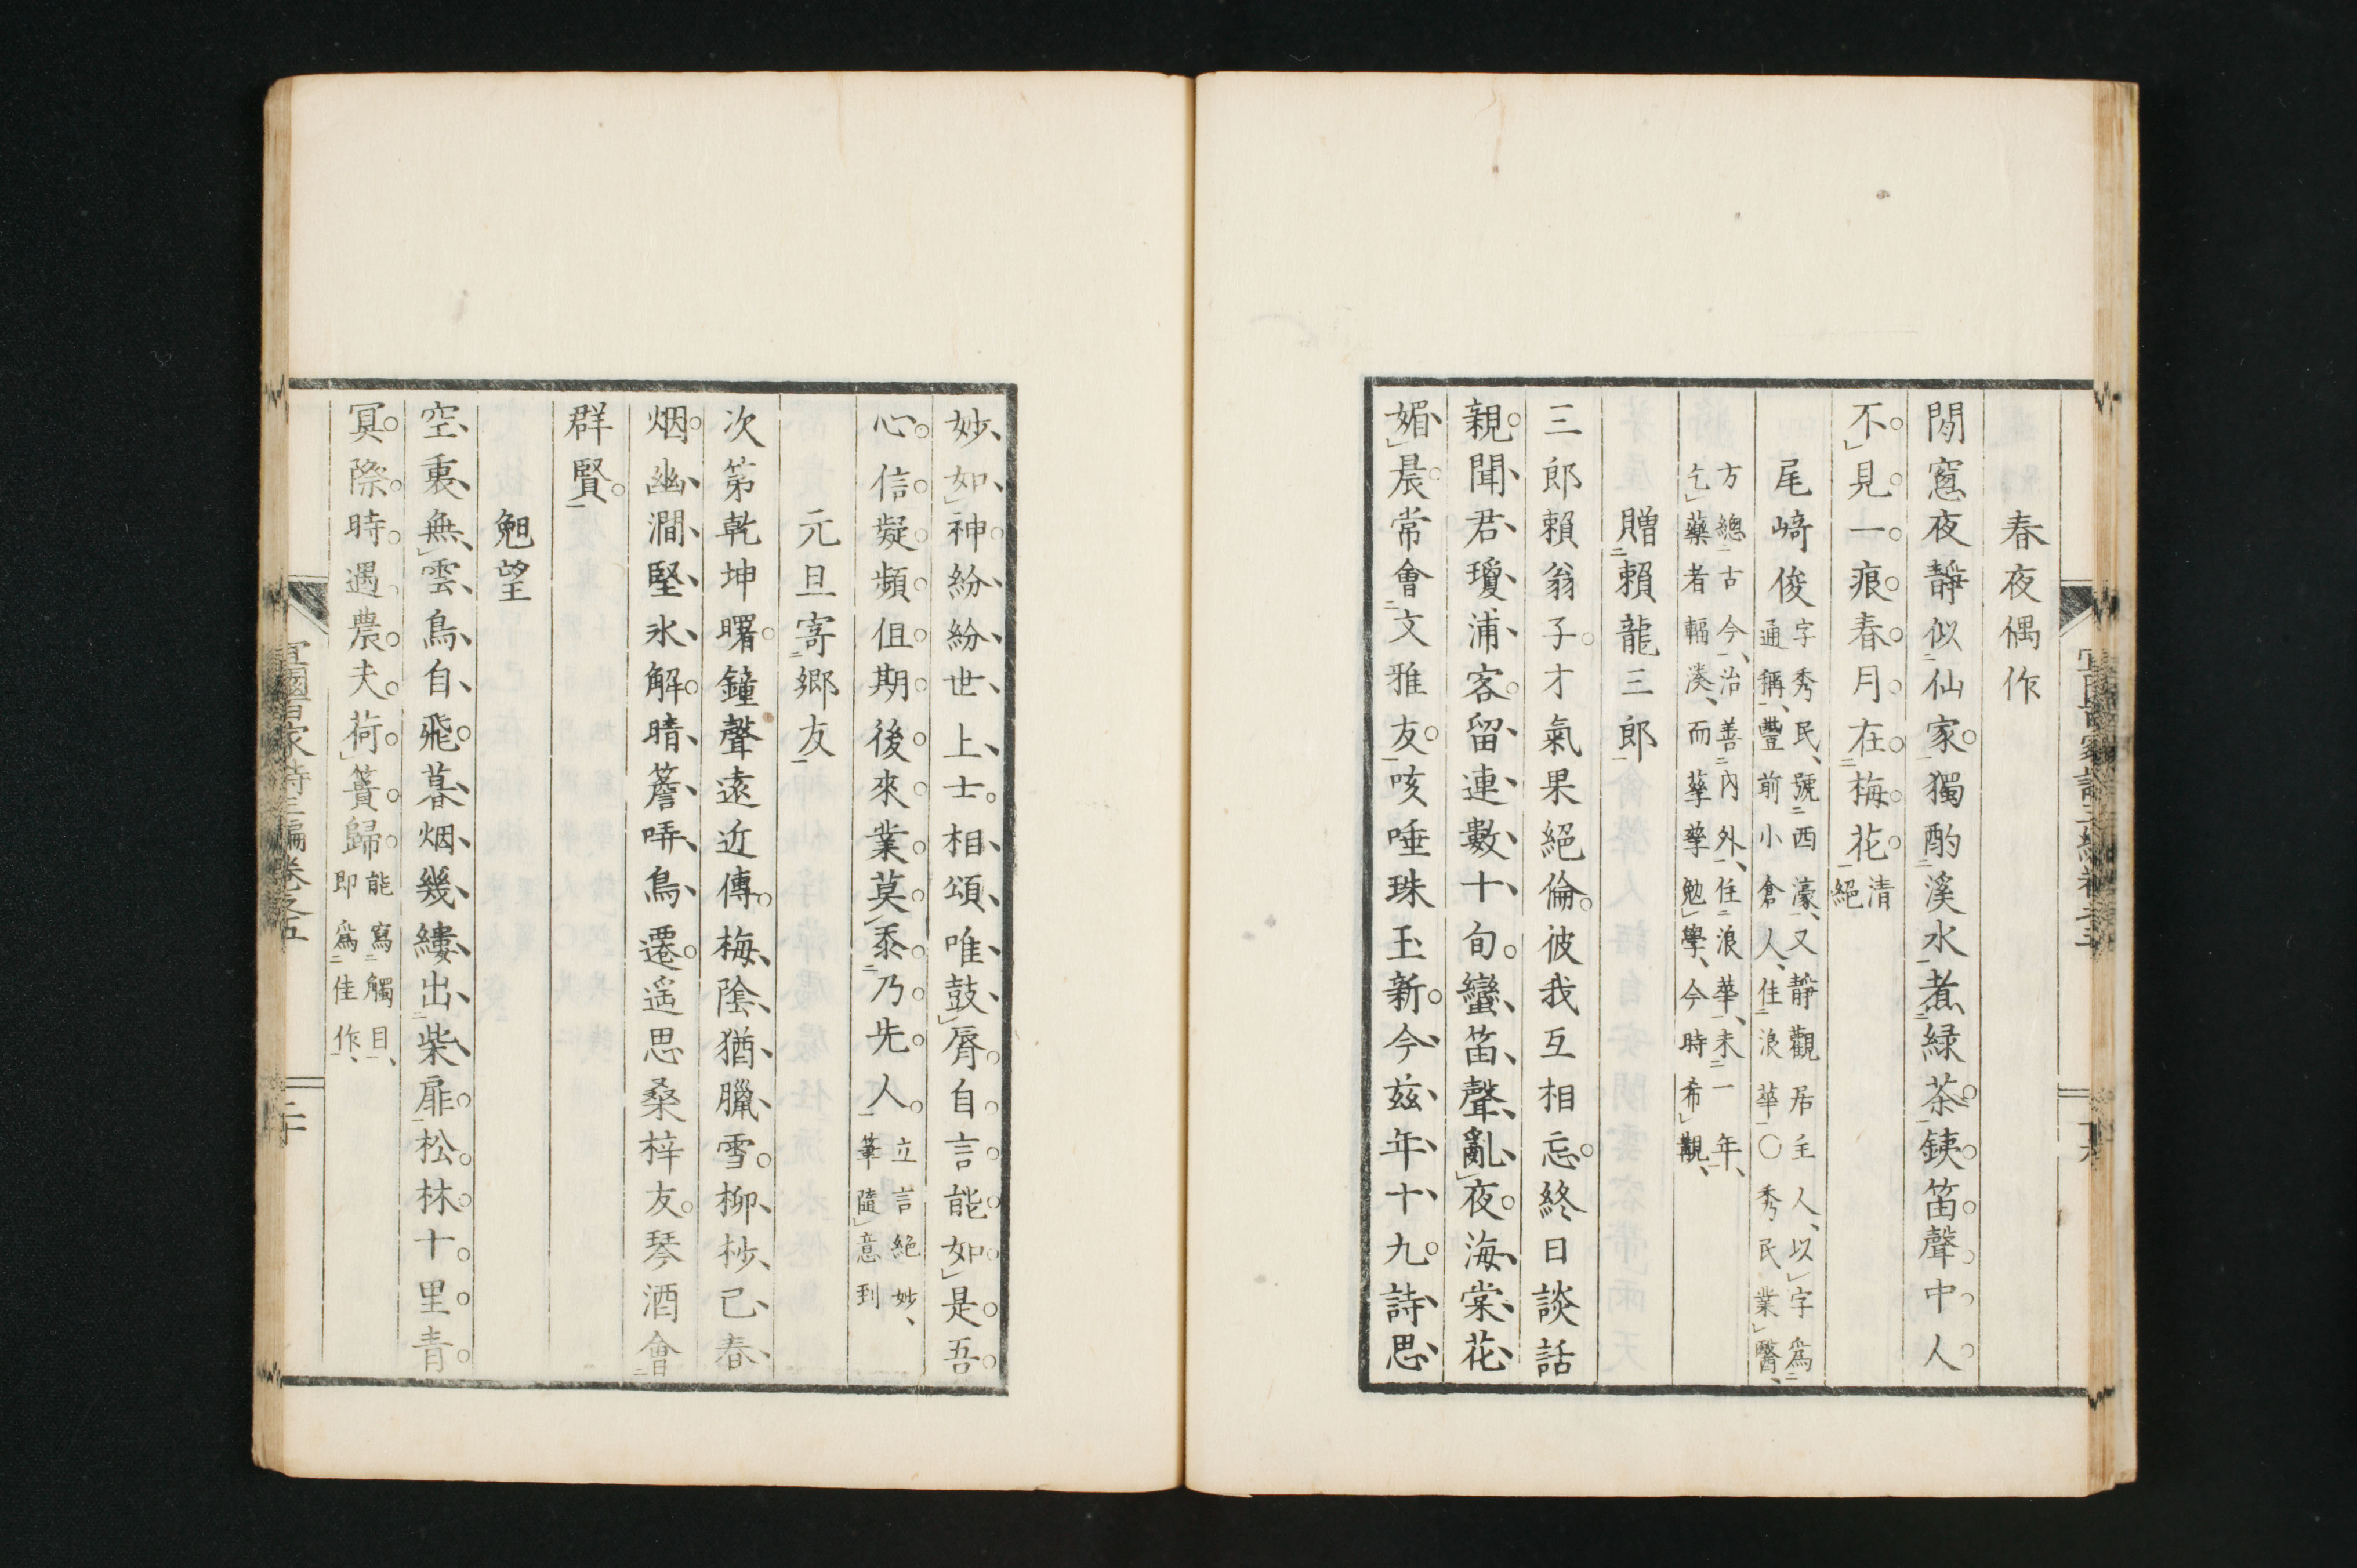 春夜偶作
閒窻夜靜似仙家獨酌溪水煮緑茶鉄笛聲中人
不見一痕春月在梅花清絕
尾﨑俊字秀民號西濠又靜觀居主人以字爲通稱豐前小倉人住浪華〇秀民業醫
方總古今治善內外住浪華未一年乞藥者輻湊而孳孳勉學今時希覯
贈賴龍三郎
三郎賴翁子才氣果絕倫彼我互相忘終日談話
親聞君瓊浦客留連數十旬蠻笛聲亂夜海棠花
媚晨常會文雅友咳唾珠玉新今玆年十九詩思
妙如神紛紛世上士相頌唯鼓脣自言能如是吾
心信疑頻但期後來業莫忝乃先人立言絕妙筆隨意到
元旦寄鄉友
次第乾坤曙鐘聲遠近傳梅陰猶臘雪柳杪已春
烟幽澗堅氷解晴簷哢鳥遷遥思桑梓友琴酒會
群賢
晚望
空裏無雲鳥自飛暮烟幾縷出柴扉松林十里青
冥際時遇農夫荷簣歸能寫觸目即爲佳作
宜園百家詩三編卷之五
二十